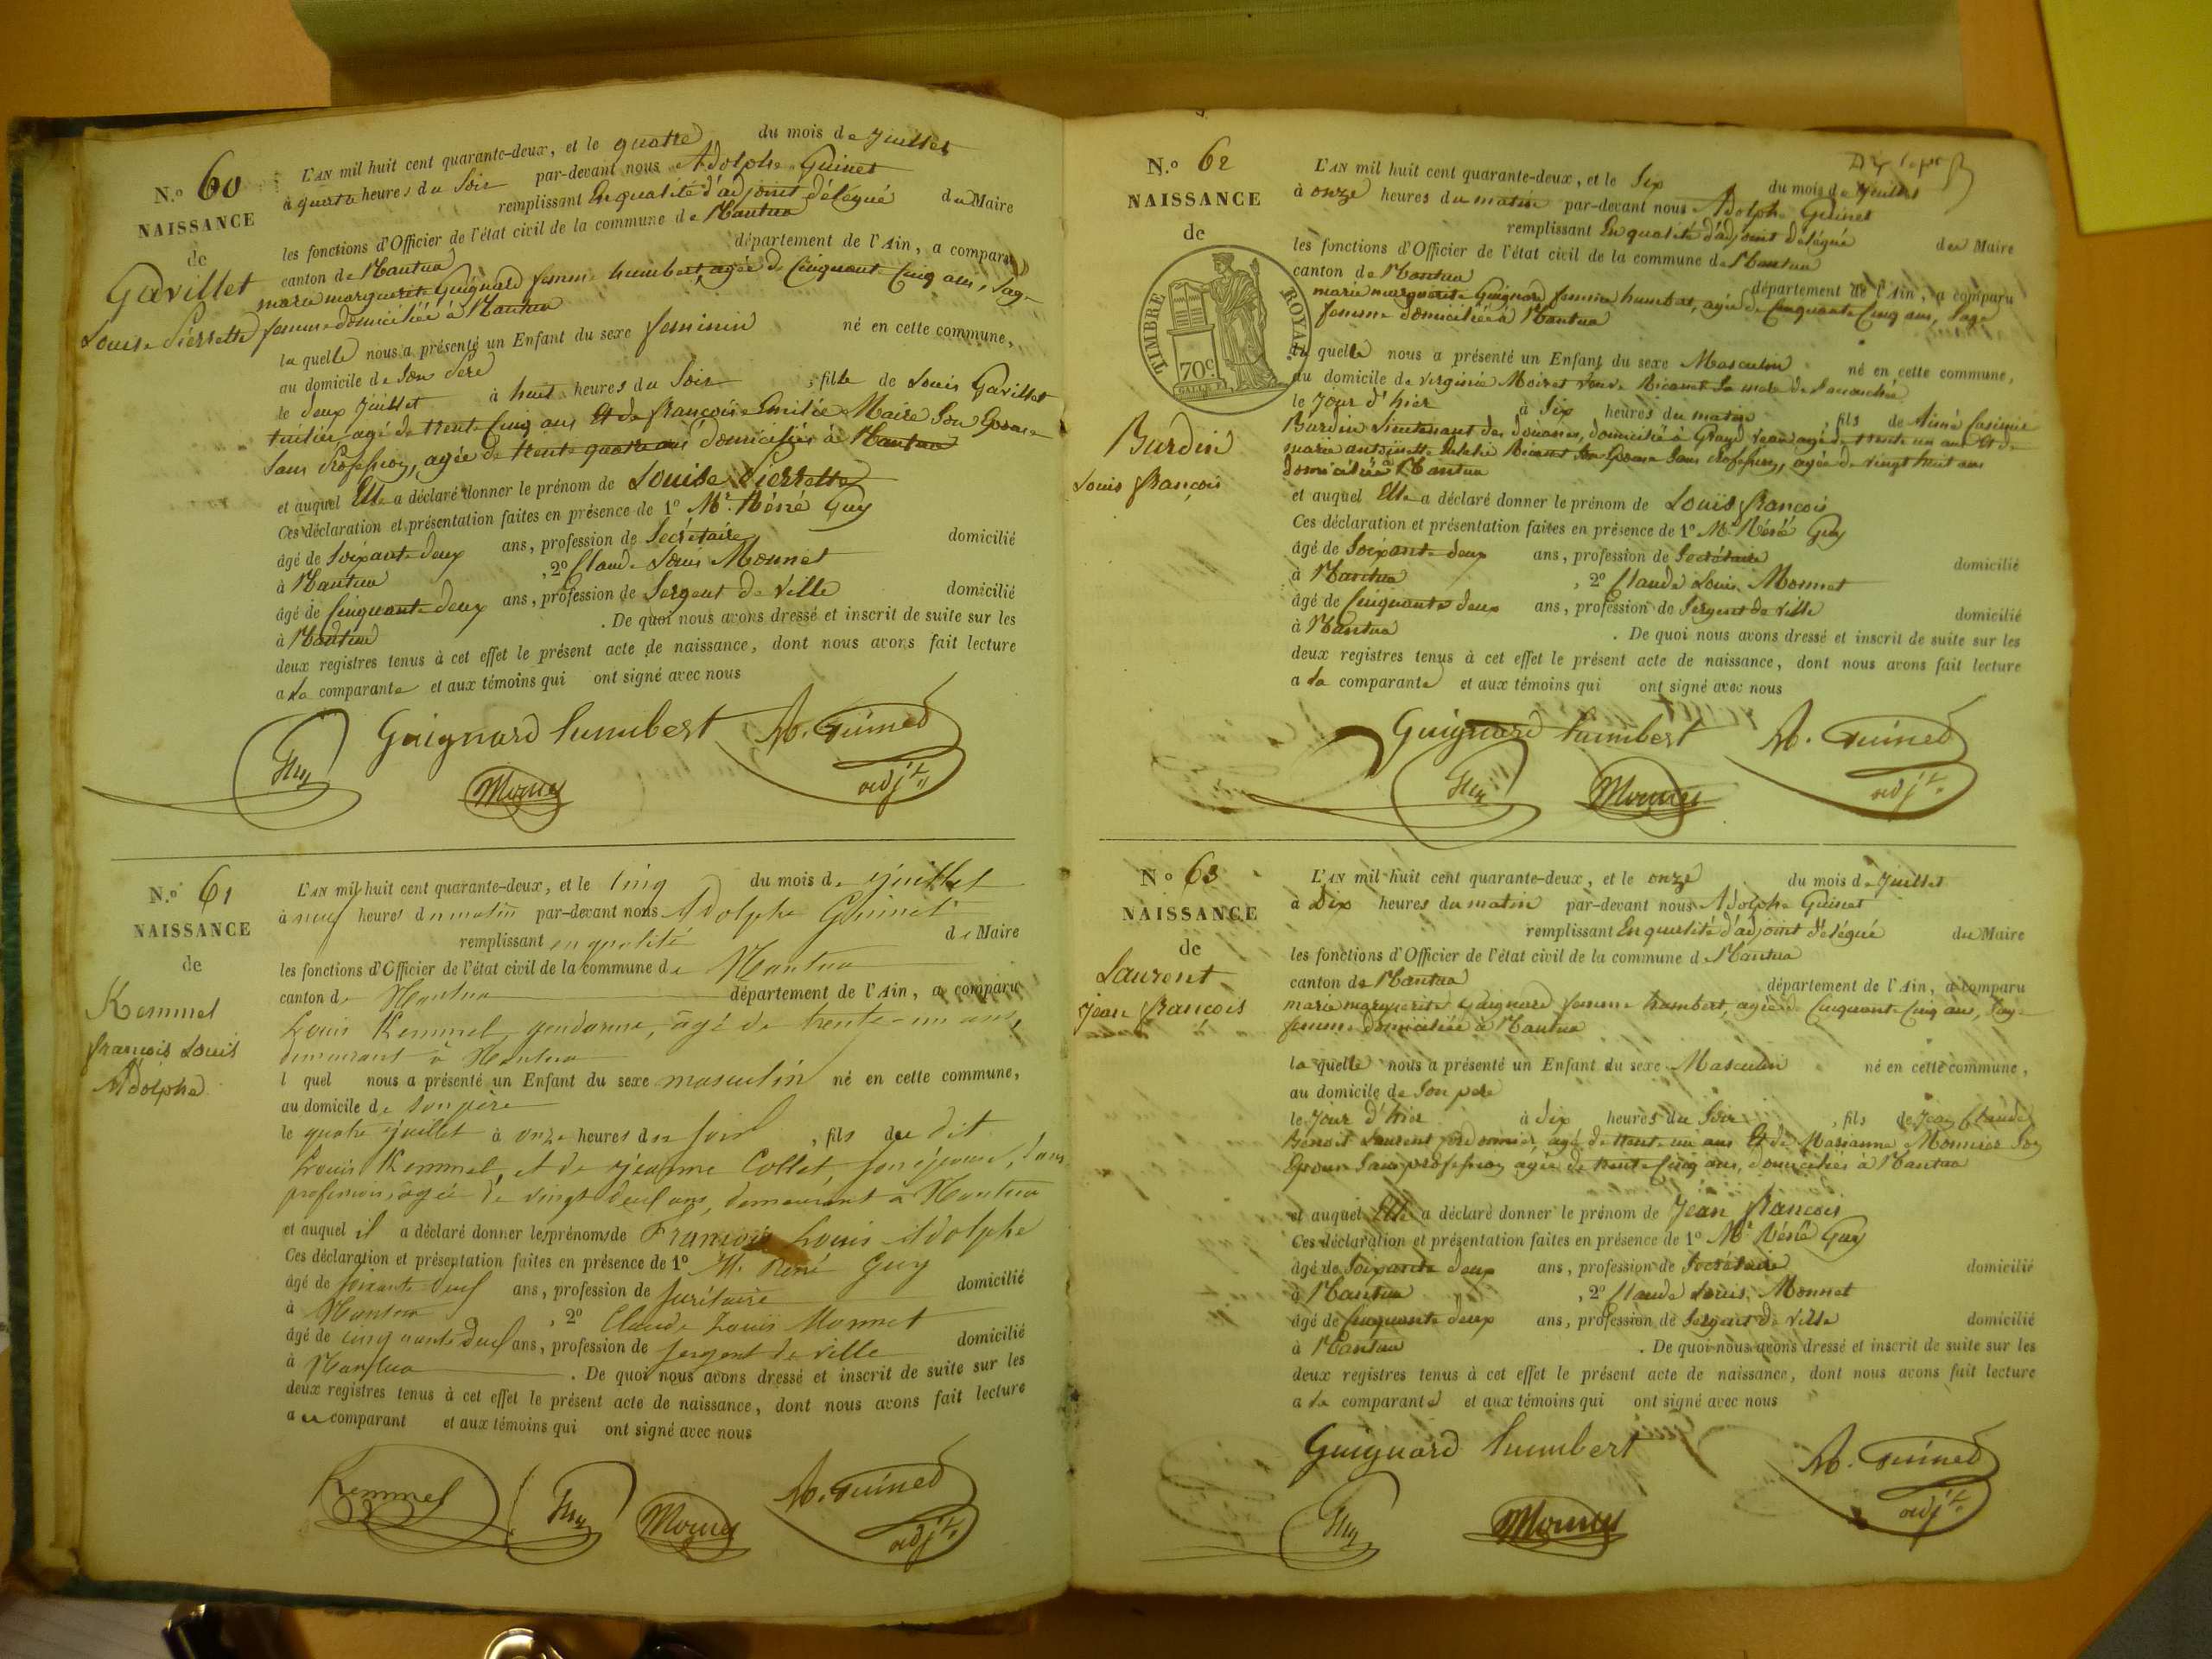 N.º 60
NAISSANCE
de
Gavillet
Louise Pierrette
L'AN mil huit cent quarante-deux, et le quatre du mois de Juillet
à quatre heures du Soir par-devant nous Adolphe Guinet
remplissant En qualité d'adjoint délégué du Maire
les fonctions d'Officier de l'état civil de la commune de Nantua
canton de Nantua département de l'Ain, a comparu
marie marguerite Guignard femme humbert, agée de Cinquante Cinq ans, Sage
femme domiciliée à Nantua
la quelle nous a présenté un Enfant du sexe feminin né en cette commune,
au domicile de Son Pere
le deux Juillet à huit heures du Soir, fille de Louis Gavillet
agé de trente Cinq ans Et de françoise Emilie Maire Son Epouse
Sans Profession, agée de trente quatre ans domiciliés à Nantua
et auquel Elle a déclaré donner le prénom de Louise Pierrette
Ces déclaration et présentation faites en présence de 1º Mr. Réné Guy
âgé de Soixante deux ans, profession de Secrétaire domicilié
à Nantua, 2º Claude Louis Monnet
âgé de Cinquante deux ans, profession de Sergent de Ville domicilié
à Nantua. De quoi nous avons dressé et inscrit de suite sur les
deux registres tenus à cet effet le présent acte de naissance, dont nous avons fait lecture
a la comparante et aux témoins qui ont signé avec nous
Guignard humbert
A. Guinet
adjt.
Guy
Monnet
N.º 61
NAISSANCE
de
Kemmel
françois Louis
Adolphe
L'AN mil huit cent quarante-deux, et le cinq du mois de juillet
à neuf heures du matin par-devant nous Adolphe Guinet
remplissant en qualité de Maire
les fonctions d'Officier de l'état civil de la commune de Nantua
canton de Nantua département de l'Ain, a comparu
Louis Kemmel, gendarme, âgé de trente-un ans,
demeurant à Nantua
l quel nous a présenté un Enfant du sexe masculin né en cette commune,
au domicile de son père
le quatre juillet à onze heures du soir, fils du dit
Louis Kemmel, et de jeanne Collet, son épouse, sans
profession, agée de vingt deux ans, demeurant à Nantua
et auquel il a déclaré donner les prénoms de François Louis Adolphe
Ces déclaration et présentation faites en présence de 1º M. René Guy
âgé de soixante deux ans, profession de secrétaire domicilié
à Nantua, 2º Claude Louis Monnet
âgé de cinquante deux ans, profession de sergent de ville domicilié
à Nantua. De quoi nous avons dressé et inscrit de suite sur les
deux registres tenus à cet effet le présent acte de naissance, dont nous avons fait lecture
a u comparant et aux témoins qui ont signé avec nous
Kemmel
Guy
Monnet
A. Guinet
adjt.
N.º 62
NAISSANCE
de
TIMBRE ROYAL
70 c.
Burdin
Louis françois
L'AN mil huit cent quarante-deux, et le Six du mois de Juillet
à onze heures du matin par-devant nous Adolphe Guinet
remplissant En qualité d'adjoint délégué du Maire
les fonctions d'Officier de l'état civil de la commune de Nantua
canton de Nantua département de l'Ain, a comparu
marie marguerite Guignard femme humbert, agée de Cinquante Cinq ans, Sage
femme domiciliée à Nantua
la quelle nous a présenté un Enfant du sexe Masculin né en cette commune,
au domicile de Virginie Moiret Veuve Bicanet La mere de l'accouchée
le Jour d'hier à Six heures du matin fils de Aimé Casimir
Burdin Lieutenant des douanes, domicilié à Grand agé de trente un ans Et de
marie antoinette Bicanet Son Epouse Sans Profession, agée de vingt huit ans
domiciliée à Nantua
et auquel Elle a déclaré donner le prénom de Louis françois
Ces déclaration et présentation faites en présence de 1º Mr. Réné Guy
âgé de Soixante deux ans, profession de Secrétaire domicilié
à Nantua, 2º Claude Louis Monnet
âgé de Cinquante deux ans, profession de Sergent de Ville domicilié
à Nantua. De quoi nous avons dressé et inscrit de suite sur les
deux registres tenus à cet effet le présent acte de naissance, dont nous avons fait lecture
a la comparante et aux témoins qui ont signé avec nous
Guignard humbert
A. Guinet
adjt.
Guy
Monnet
Nº 63
NAISSANCE
de
Laurent
Jean françois
L'AN mil huit cent quarante-deux, et le onze du mois de Juillet
à Dix heures du matin par-devant nous Adolphe Guinet
remplissant En qualité d'adjoint délégué du Maire
les fonctions d'Officier de l'état civil de la commune d Nantua
canton de Nantua département de l'Ain, a comparu
marie marguerite Guignard femme humbert, agée de Cinquante Cinq ans, Sage
femme domiciliée à Nantua
la quelle nous a présenté un Enfant du sexe Masculin né en cette commune,
au domicile de Son pere
le Jour d'hier à dix heures du Soir, fils de Jean Claude
Benoit Laurent Cordonnier, agé de trente un ans Et de Marianne Monnier Son
Epouse Sans profession agée de trente Cinq ans, domiciliés à Nantua
et auquel Elle a déclaré donner le prénom de Jean françois
Ces déclaration et présentation faites en présence de 1º Mr Réné Guy
âgé de Soixante deux ans, profession de Secrétaire domicilié
à Nantua, 2º Claude Louis Monnet
âgé de Cinquante deux ans, profession de Sergent de Ville domicilié
à Nantua. De quoi nous avons dressé et inscrit de suite sur les
deux registres tenus à cet effet le présent acte de naissance, dont nous avons fait lecture
a la comparante et aux témoins qui ont signé avec nous
Guignard humbert
A. Guinet
adjt.
Guy
Monnet